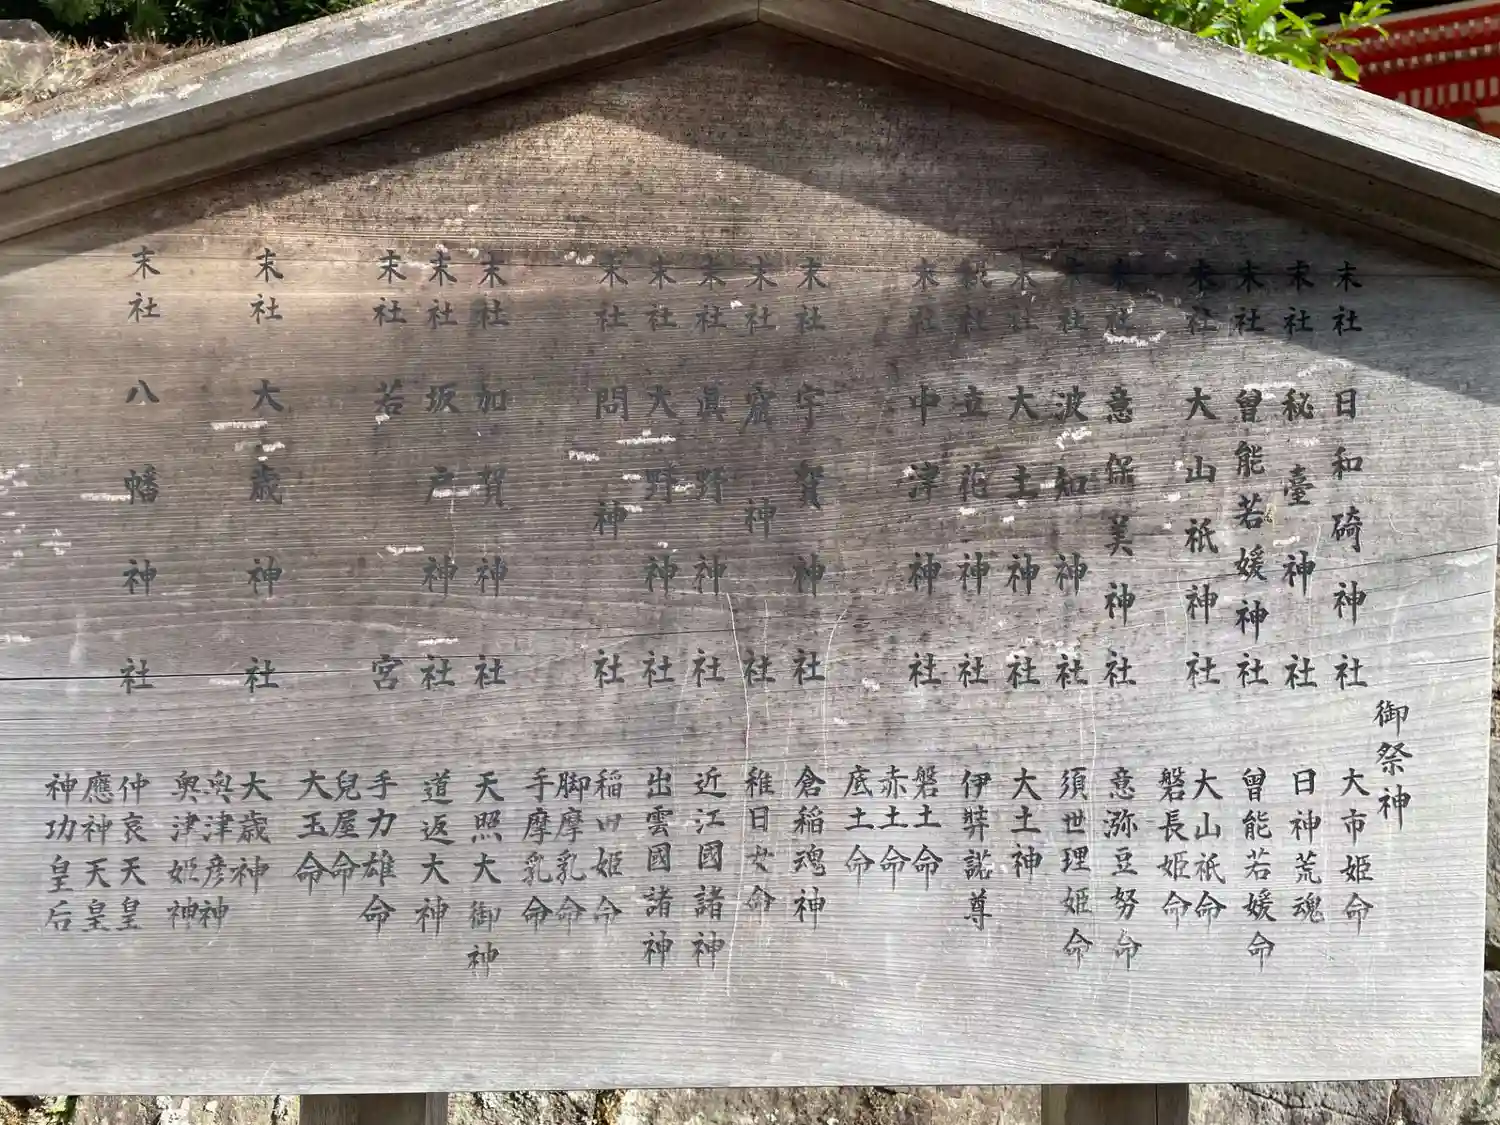 御祭神
末社 日和碕神社 大市姫命
末社 秘臺神社 日神荒魂
末社 曾能若媛神社 曾能若媛命
末社 大山祇神社 大山祇命
磐長姫命
末社 意保美神社 意弥豆努命
末社 波知神社 須世理姫命
末社 大土神社 大土神
末社 立花神社 伊弉諾尊
末社 中津神社 磐土命
赤土命
底土命
末社 宇賀神社 倉稲魂神
末社 窟神社 稚日女命
末社 眞野神社 近江國諸神
末社 大野神社 出雲國諸神
末社 問神社 稲田姫命
脚摩乳命
手摩乳命
末社 加賀神社 天照大御神
末社 坂戸神社 道返大神
末社 若宮 手力雄命
兒屋命
大玉命
末社 大歳神社 大歳神
奥津彦神
奥津姫神
末社 八幡神社 仲哀天皇
應神天皇
神功皇后